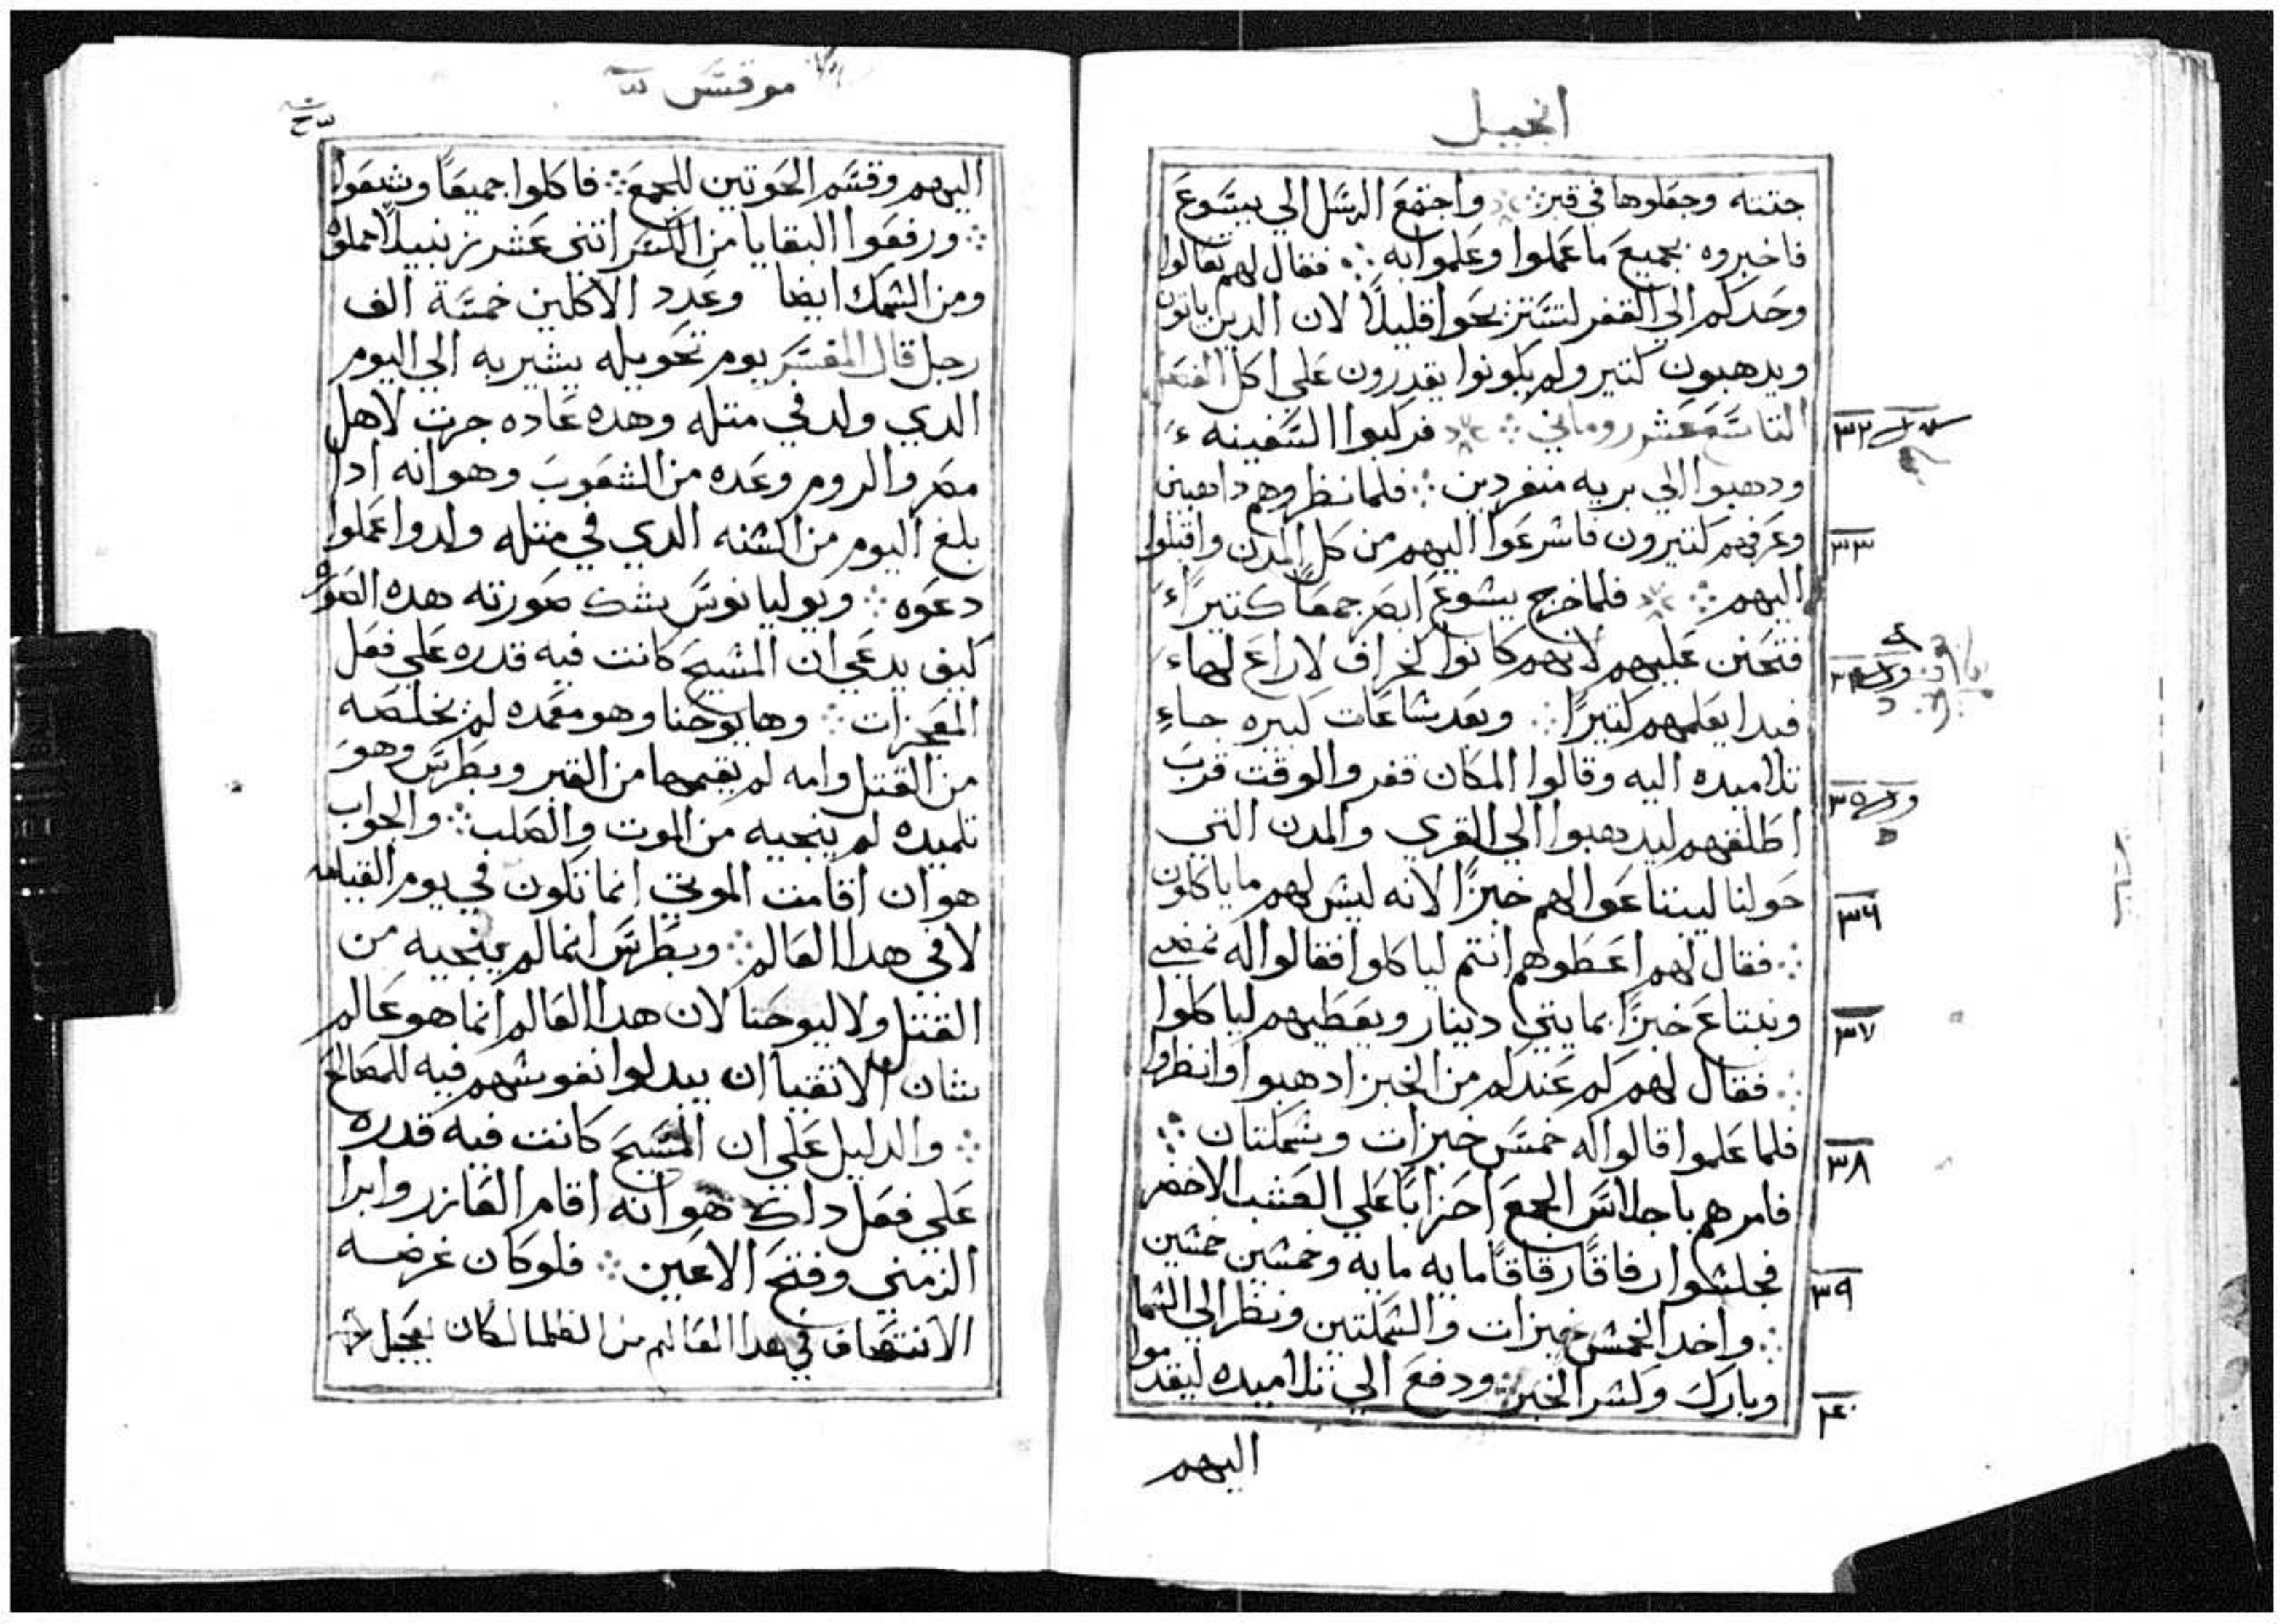 انجيل
جتته وجعلوها في قبر ⁘ واجتمع الرسل الي يسوع
فاخبروه بجميع ما عملوا وعلموا به ⁘ فقال لهم تعالوا
وحدكم الي القفر لتستريحوا قليلاً لان الدين ياتون
ويدهبون كتير ولم يكونوا يقدرون علي اكل
التاسع عشر روماني ⁘ فركبوا السفينه
ودهبوا الي بريه منفردين ⁘ فلما نظروهم داهبين
وعرفهم كتيرون فاسرعوا اليهم من كل المدن واقبلوا
اليهم ⁘ فلما خرج يسوع ابصر جمعاً كتيراً
فتحنن عليهم لانهم كانوا كخراف لا راع لها
فبدا يعلمهم كتيراً ⁘ وبعد ساعات كبيره جاء
تلاميده اليه وقالوا المكان قفر والوقت قرب
اطلقهم ليدهبوا الي القري والمدن التي
حولنا ليبتاعوا لهم خبزاً لانه ليس لهم ما ياكلون
⁘ فقال لهم اعطوهم انتم لياكلوا فقالوا له نمضي
ونبتاع خبزاً بمايتي دينار ويعطيهم لياكلوا
⁘ فقال لهم كم عندكم من الخبز ادهبوا وانظروا
فلما علموا قالوا له خمس خبزات وسمكتان ⁘
فامرهم باجلاس الجمع احزاباً علي العشب الاخضر
فجلسوا رفاقاً رفاقاً مايه مايه وخمسين خمسين
⁘ واخد الخمس خبزات والسمكتين ونظر الي السما
وبارك وكسر الخبز ⁘ ودفع الي تلاميده ليقدموا
اليهم
٣٢
٣٣
٣٤
٣٥
٣٦
٣٧
٣٨
٣٩
٤٠
مرقس
اليهم وقسم الحوتين للجمع ⁘ فاكلوا جميعاً وشبعوا
⁘ ورفعوا البقايا من الكسر اتني عشر زنبيلاً مملوه
ومن السمك ايضا وعدد الاكلين خمسة الف
رجل قال المفسر يوم تحويله يشير به الي اليوم
الدي ولد في متله وهده عاده جرت لاهل
مصر والروم وعده من الشعوب وهو انه ادا
بلغ اليوم من السنه الدي في متله ولدوا عملوا
دعوه ⁘ ويوليانوس يشك صورته هده الصوره
كيف يدعي ان المسيح كانت فيه قدره علي فعل
المعجزات ⁘ وها يوحنا وهو معمده لم يخلصه
من القتل وامه لم يقيمها من القبر وبطرس وهو
تلميده لم ينجيه من الموت والصلب ⁘ والجواب
هو ان اقامت الموتي انما تكون في يوم القيامه
لا في هدا العالم ⁘ وبطرس انما لم ينجيه من
القتل ولا ليوحنا لان هدا العالم انما هو عالم
شان الاتقيا ان يبدلوا نفوسهم فيه للمصالح
⁘ والدليل علي ان المسيح كانت فيه قدره
علي فعل داك هو انه اقام العازر وابرا
الزمني وفتح الاعين ⁘ فلو كان غرضه
الانتصاف في هدا العالم من الظلما لكان يعجل